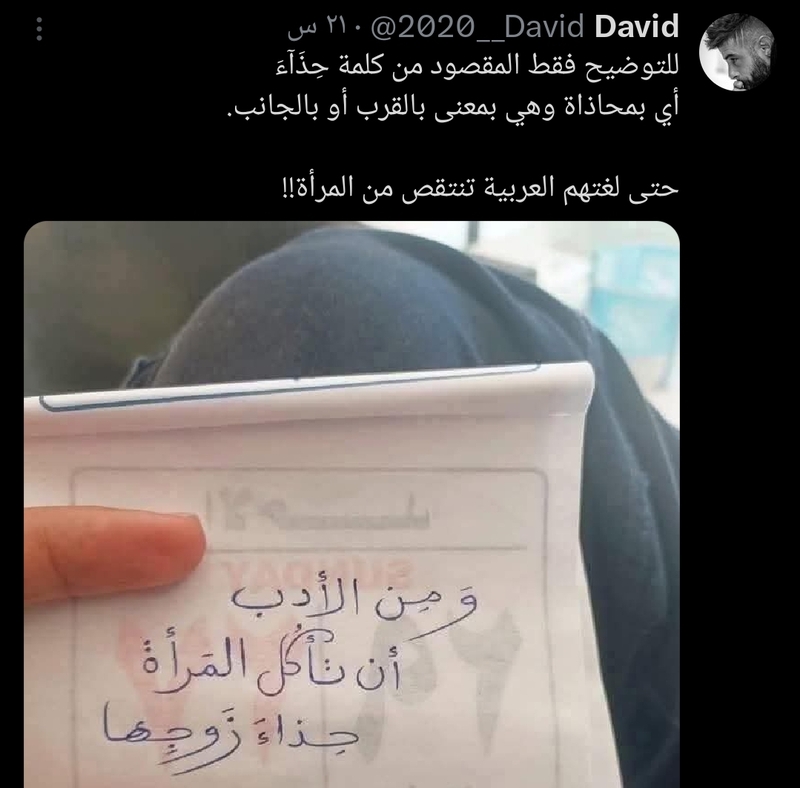 David @David__2020 · ٢١ س
للتوضيح فقط المقصود من كلمة حِذَآءَ
أي بمحاذاة وهي بمعنى بالقرب أو بالجانب.
حتى لغتهم العربية تنتقص من المرأة!!
SUNDAY
وَ مِن الأدب
أن تأكُل المَرأةُ
حِذاءَ زَوجِها